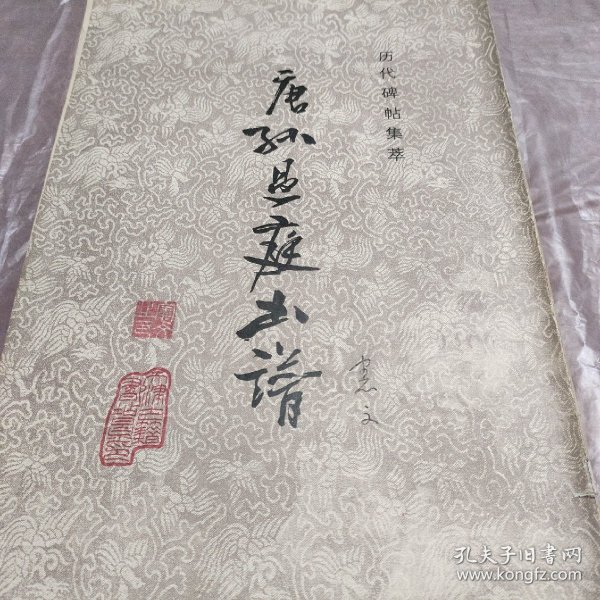 历代碑帖集萃
唐孙过庭书谱
孔夫子旧书网
www.kongfz.com